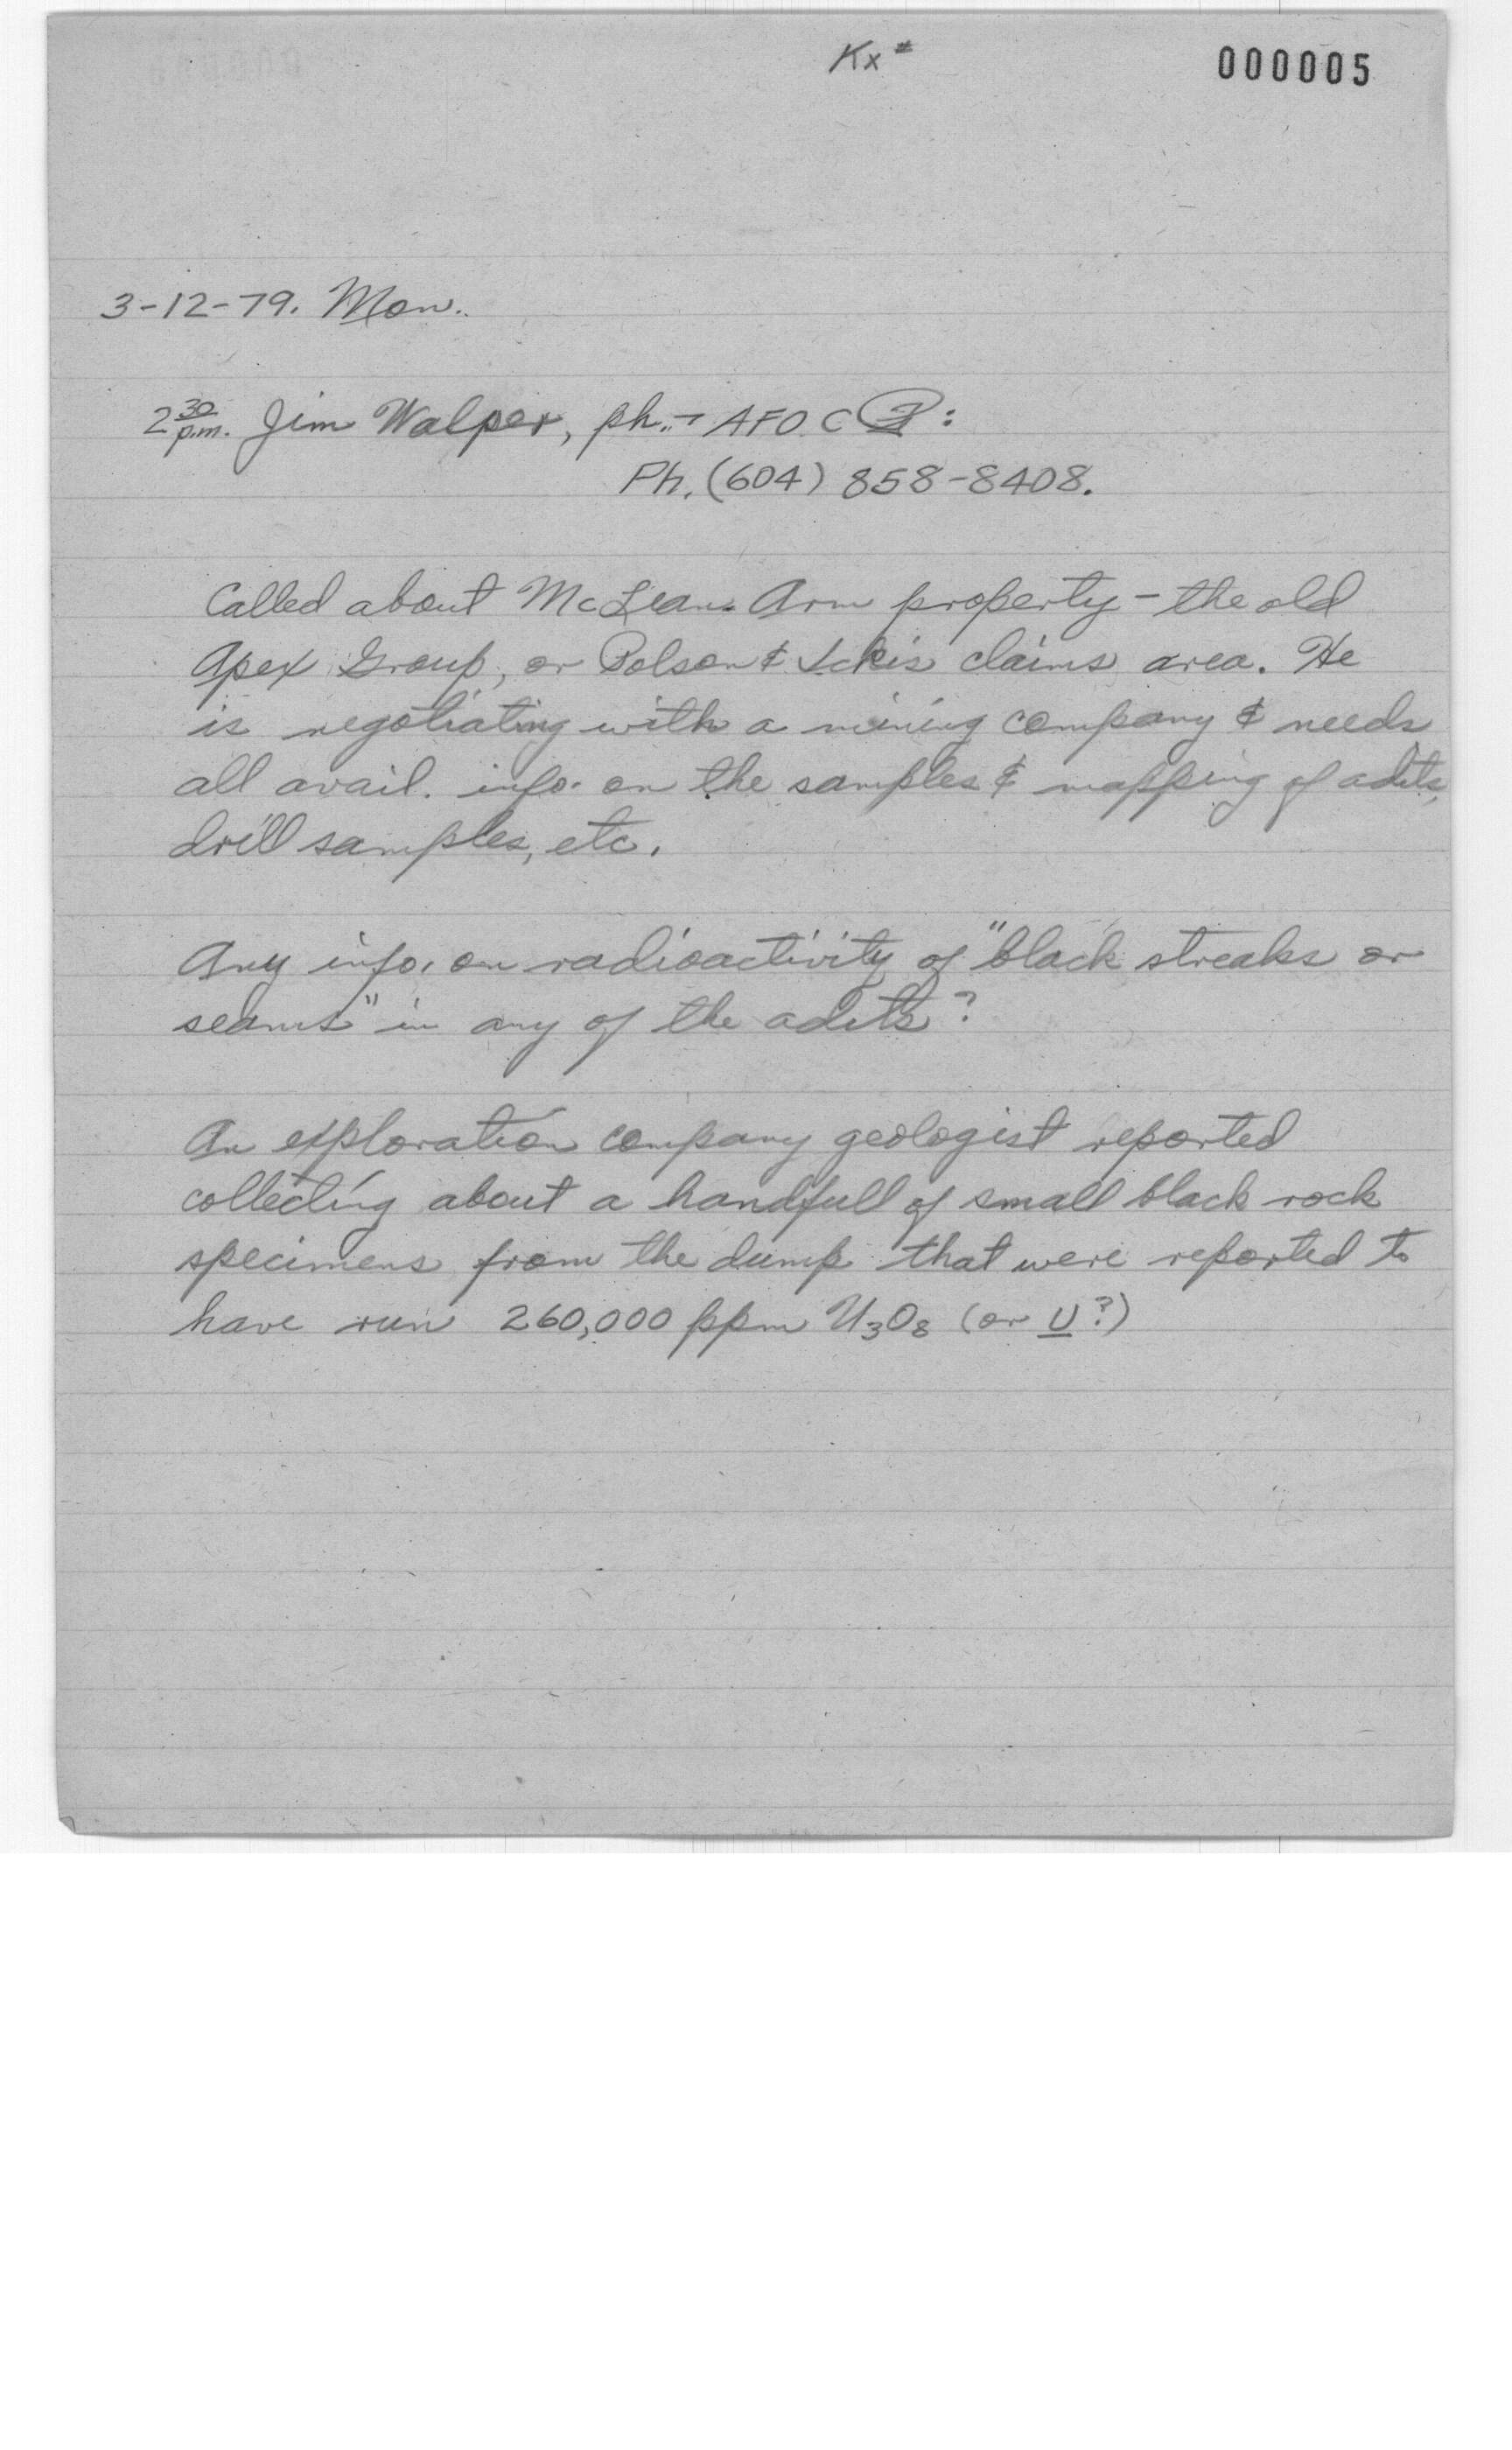 Kx#
000005
3-12-79. Mon.
2 30 p.m. Jim Walper, ph. → AFO C :
Ph. (604) 858-8408.
Called about McLean Arm property - the old
Apex Group, or Polson & Ickis claims area. He
is negotiating with a mining company & needs
all avail. info. on the samples & mapping of adits,
drill samples, etc.
Any info. on radioactivity of "black streaks or
seams" in any of the adits?
An exploration company geologist reported
collecting about a handfull of small black rock
specimens from the dump that were reported to
have run 260,000 ppm U3O8 (or U?)